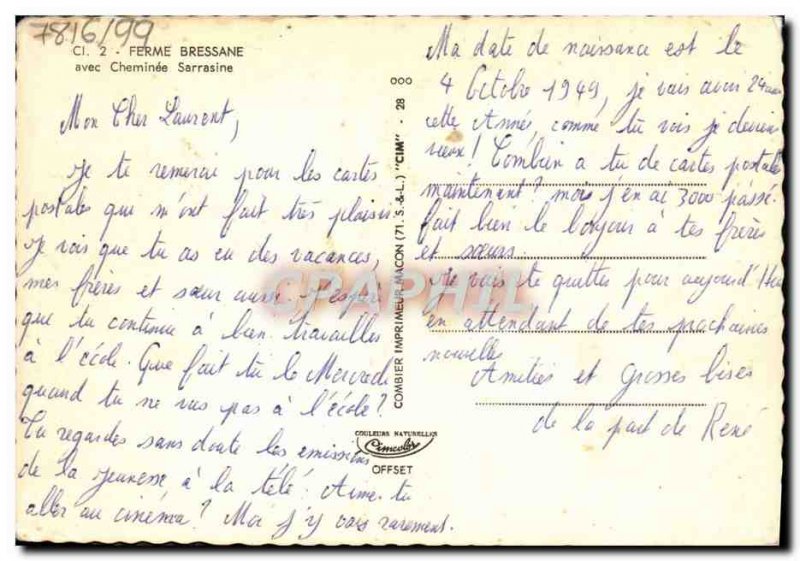 7816/99
Cl. 2 - FERME BRESSANE
avec Cheminée Sarrasine
Mon Cher Laurent,
Je te remercie pour les cartes
postales que m'ont fait très plaisir
Je vois que tu as eu des vacances,
mes frères et sœur aussi. J'espère
que tu continue à bien travailler
à l'école. Que fait tu le Mercredi
quand tu ne vas pas à l'école?
Tu regardes sans doute les emissions
de la jeunesse à la télé. Aime-tu
aller au cinéma? Moi j'y vais rarement.
COMBIER IMPRIMEUR MACON (71. S.-&-L.) "CIM" - 28 000
COULEURS NATURELLES
Cimcolor
OFFSET
CPARAPHIL
Ma date de naissance est le
4 Octobre 1949, je vais avoir 24 ans
cette Année, comme tu vois je deviens
vieux! Combien a tu de cartes postales
maintenant? moi j'en ai 3000 passé.
fait bien le bonjour à tes frères
et sœurs.
Je vais te quitter pour aujourd'Hui
en attendant de tes prochaines
nouvelles
Amitiés et Grosses bises
de la part de René